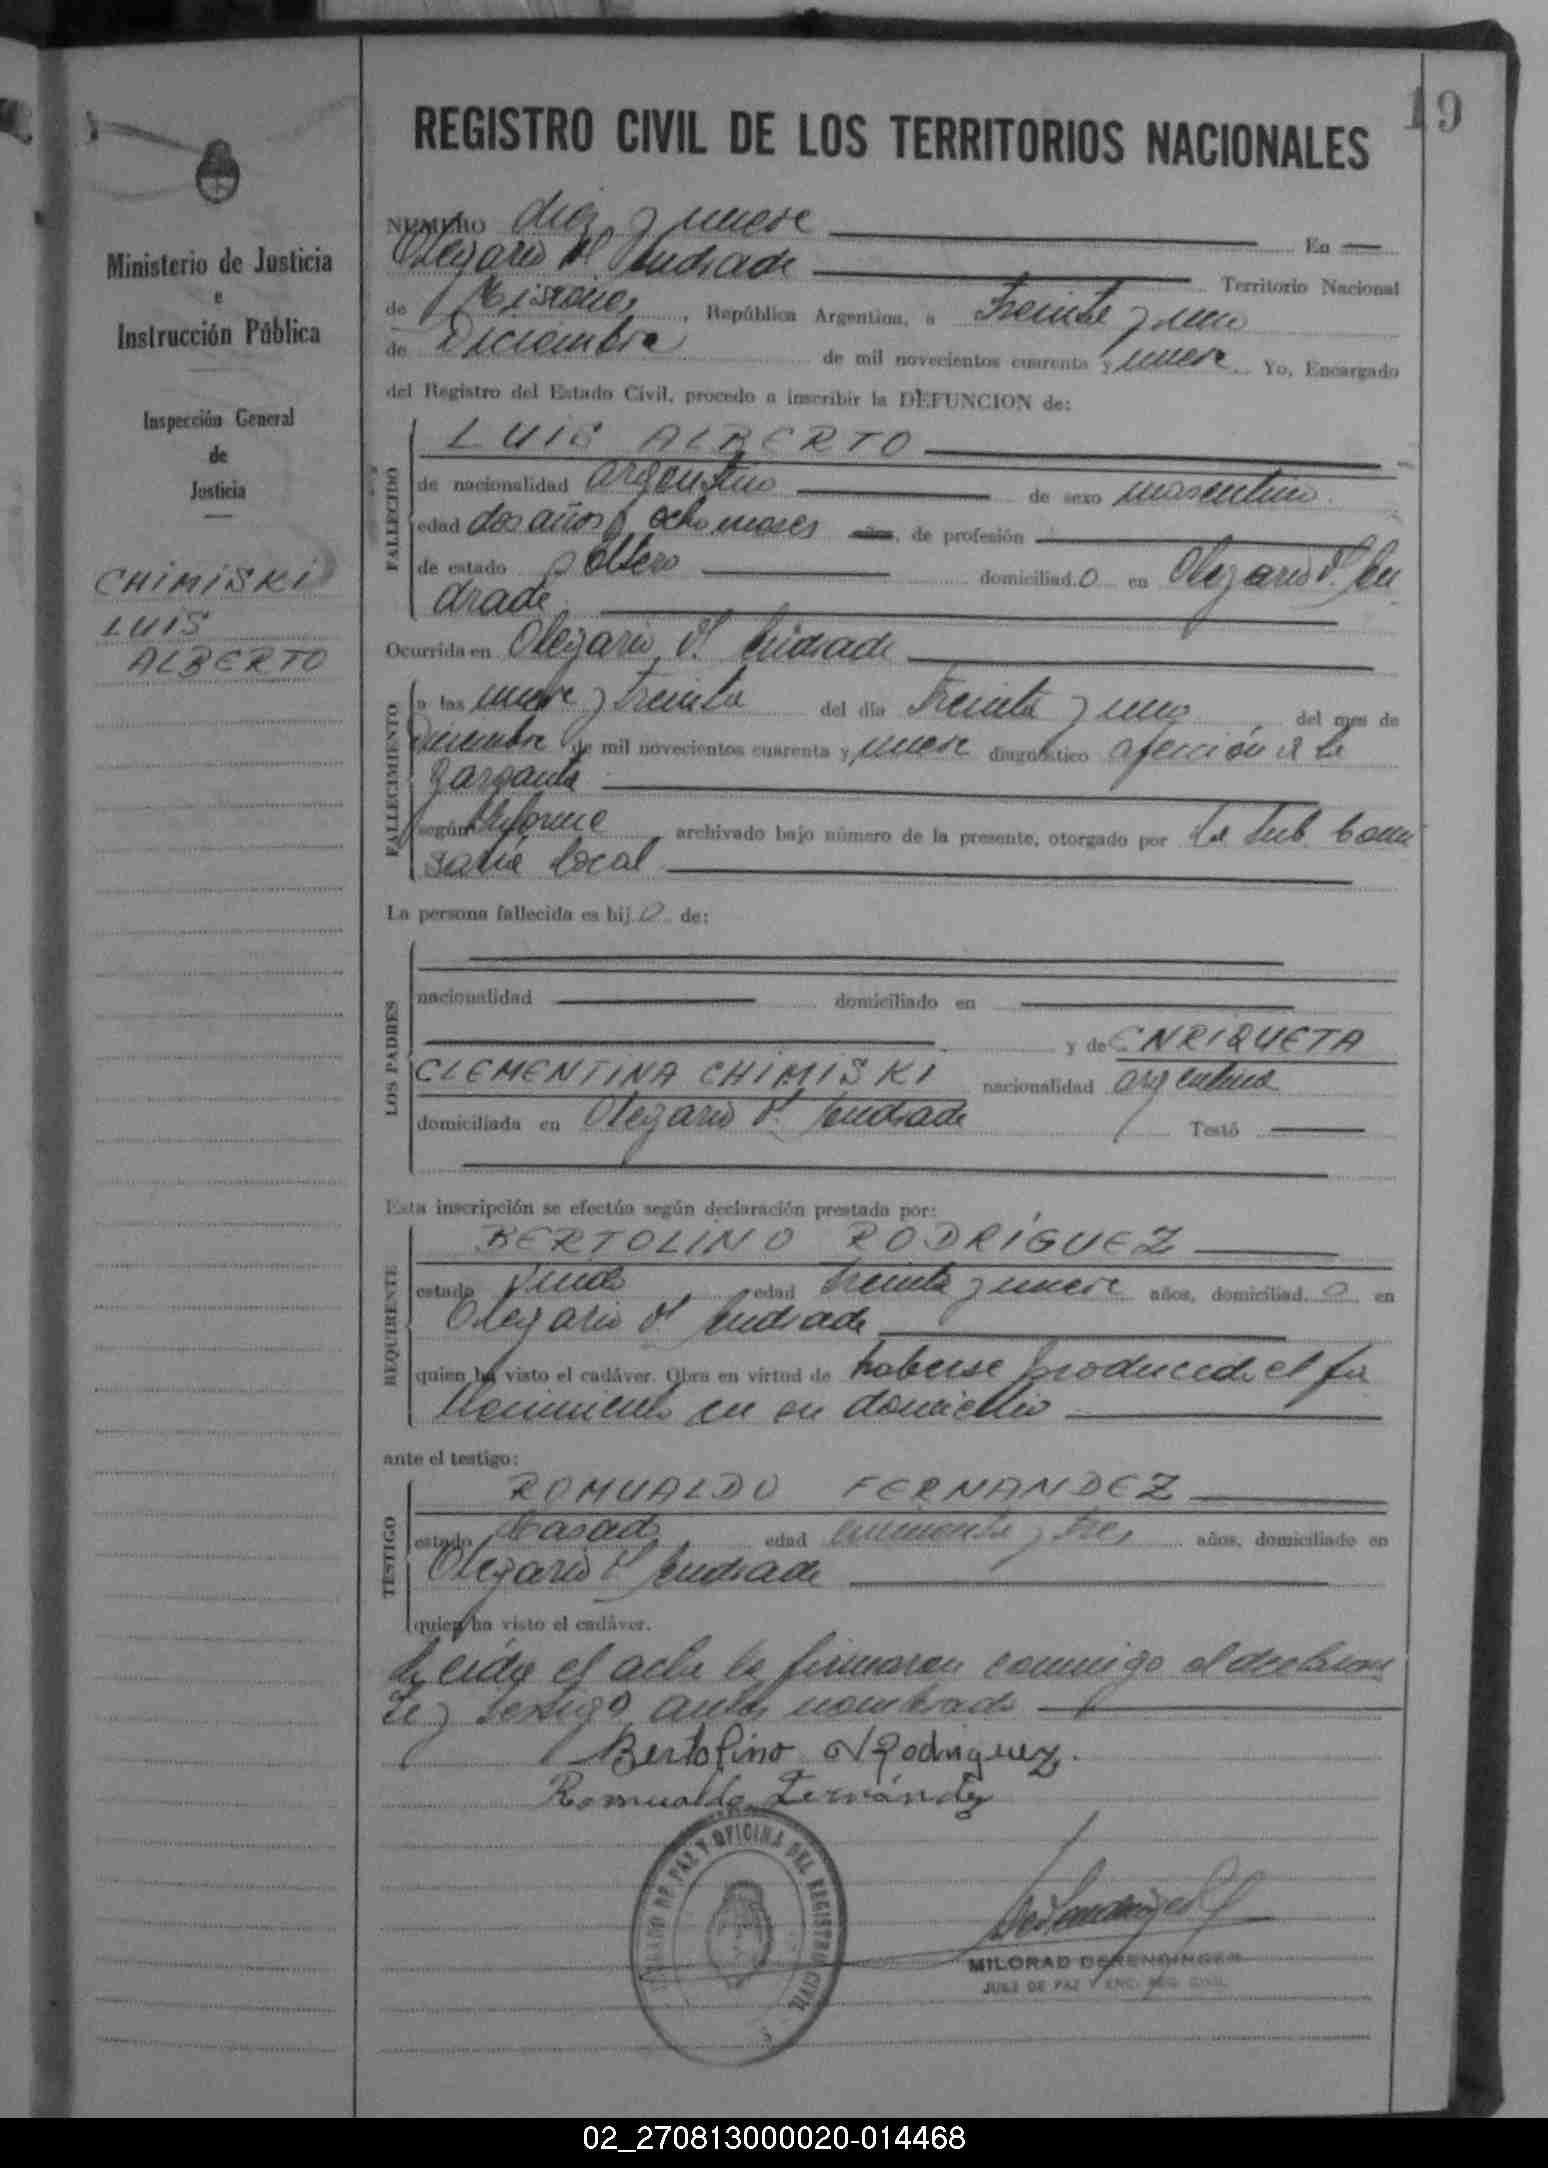 19
REGISTRO CIVIL DE LOS TERRITORIOS NACIONALES
Ministerio de Justicia
e
Instrucción Pública
Inspección General
de
Justicia
CHIMISKI
LUIS
ALBERTO
NUMERO diez y nueve En
Olegario V. Andrade Territorio Nacional
de Misiones, República Argentina, a treinta y uno
de Diciembre de mil novecientos cuarenta y nueve Yo, Encargado
del Registro del Estado Civil, procedo a inscribir la DEFUNCION de:
FALLECIDO
LUIS ALBERTO
de nacionalidad argentino de sexo masculino
edad dos años y ocho meses años, de profesión
de estado soltero domiciliad o en Olegario V. An
drade
Ocurrida en Olegario V. Andrade
FALLECIMIENTO
a las nueve y treinta del día treinta y uno del mes de
Diciembre de mil novecientos cuarenta y nueve diagnóstico afección a la
garganta
según informe archivado bajo número de la presente, otorgado por la Sub Comi
saria local
La persona fallecida es hij o de:
LOS PADRES
nacionalidad domiciliado en
y de ENRIQUETA
CLEMENTINA CHIMISKI nacionalidad argentina
domiciliada en Olegario V. Andrade Testó
Esta inscripción se efectúa según declaración prestada por:
REQUIRENTE
BERTOLINO RODRÍGUEZ
estado viudo edad treinta y nueve años, domiciliad o en
Olegario V. Andrade
quien ha visto el cadáver. Obra en virtud de haberse producido el fa
llecimiento en su domicilio
ante el testigo:
TESTIGO
ROMUALDO FERNANDEZ
estado Casado edad cincuenta y tres años, domiciliado en
Olegario V. Andrade
quien ha visto el cadáver.
Leída el acta la firmaron conmigo el declaran
te y testigo antes nombrado
Bertolino Rodriguez.
Romualdo Fernández
JUZGADO DE PAZ Y OFICINA DEL REGISTRO CIVIL
MILORAD DERENDINGER
JUEZ DE PAZ Y ENC. REG. CIVIL
02_270813000020-014468